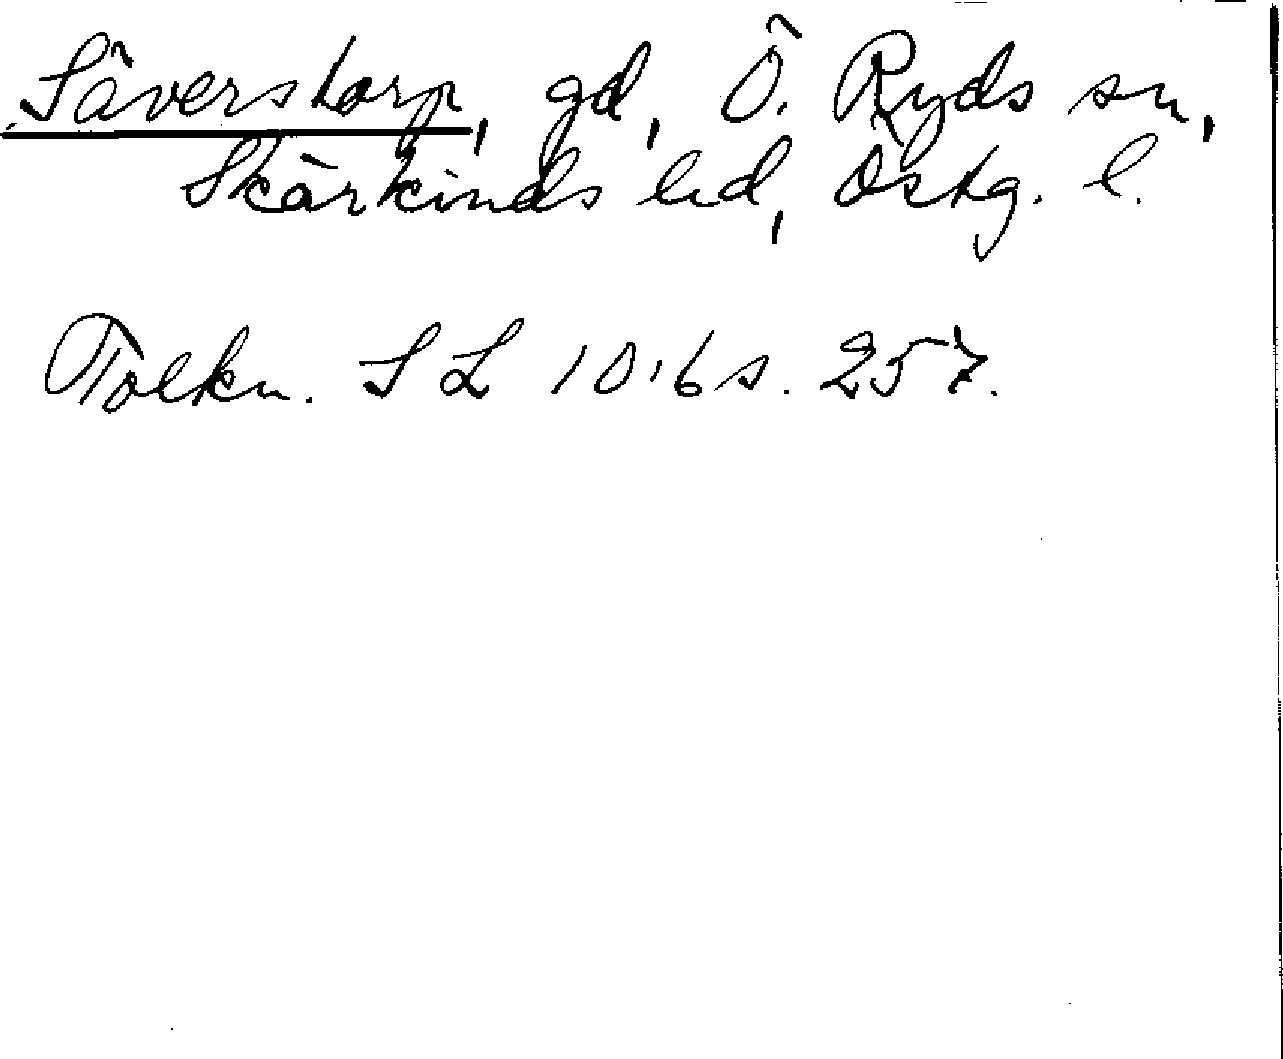 Säverstorp, gd, Ö. Ryds sn,
Skärkinds hd, Östg. l.
Tolkn. SL 10:6 s. 257.